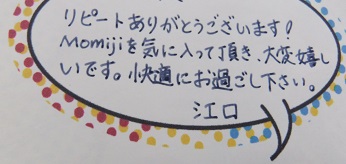 リピートありがとうございます!
Momijiを気に入って頂き、大変嬉し
いです。快適にお過ごし下さい。
江口